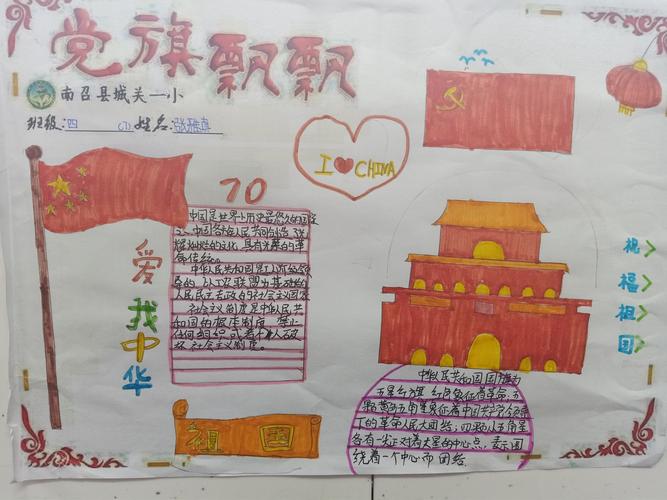 党旗飘飘
南召县城关一小
班级:四 (1) 姓名:张雅真
I CHINA
70
爱我中华
中国是世界上历史最悠久的国家
之一,中国各族人民共同创造了
辉煌灿烂的文化,具有光荣的革
命传统。
中华人民共和国是工人阶级领
导的,以工农联盟为基础的
人民民主专政的社会主义国家
社会主义制度是中华人民共
和国的根本制度。禁止
任何组织或者个人破
坏社会主义制度。
祝福祖国
祖国
中华人民共和国国旗为
五星红旗,红色象征着革命,五
颗黄色五角星象征着中国共产党领
导下的革命人民大团结,四颗小五角星
各有一尖正对着大星的中心点,表示围
绕着一个中心而团结